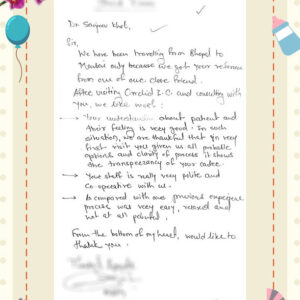 Dr. Sanjeev Khot,
Sir,
We have been traveling from Bhopal to
Mumbai only because we got your reference
from one of our close friend.
After visiting Conchid I.C. and consulting with
you, we like most:
→ Your understandin about patient and
their feeling is very good. In such
situation, we are thankful that in very
first visit you given us all probable
options and clarity of process it shows
the transperency of your centre.
→ Your staff is really very polite and
Co-operative with us.
→ In compared with our previous experience
process was very easy, relaxed and
not at all painful.
From the bottom of my heart, would like to
thank you.